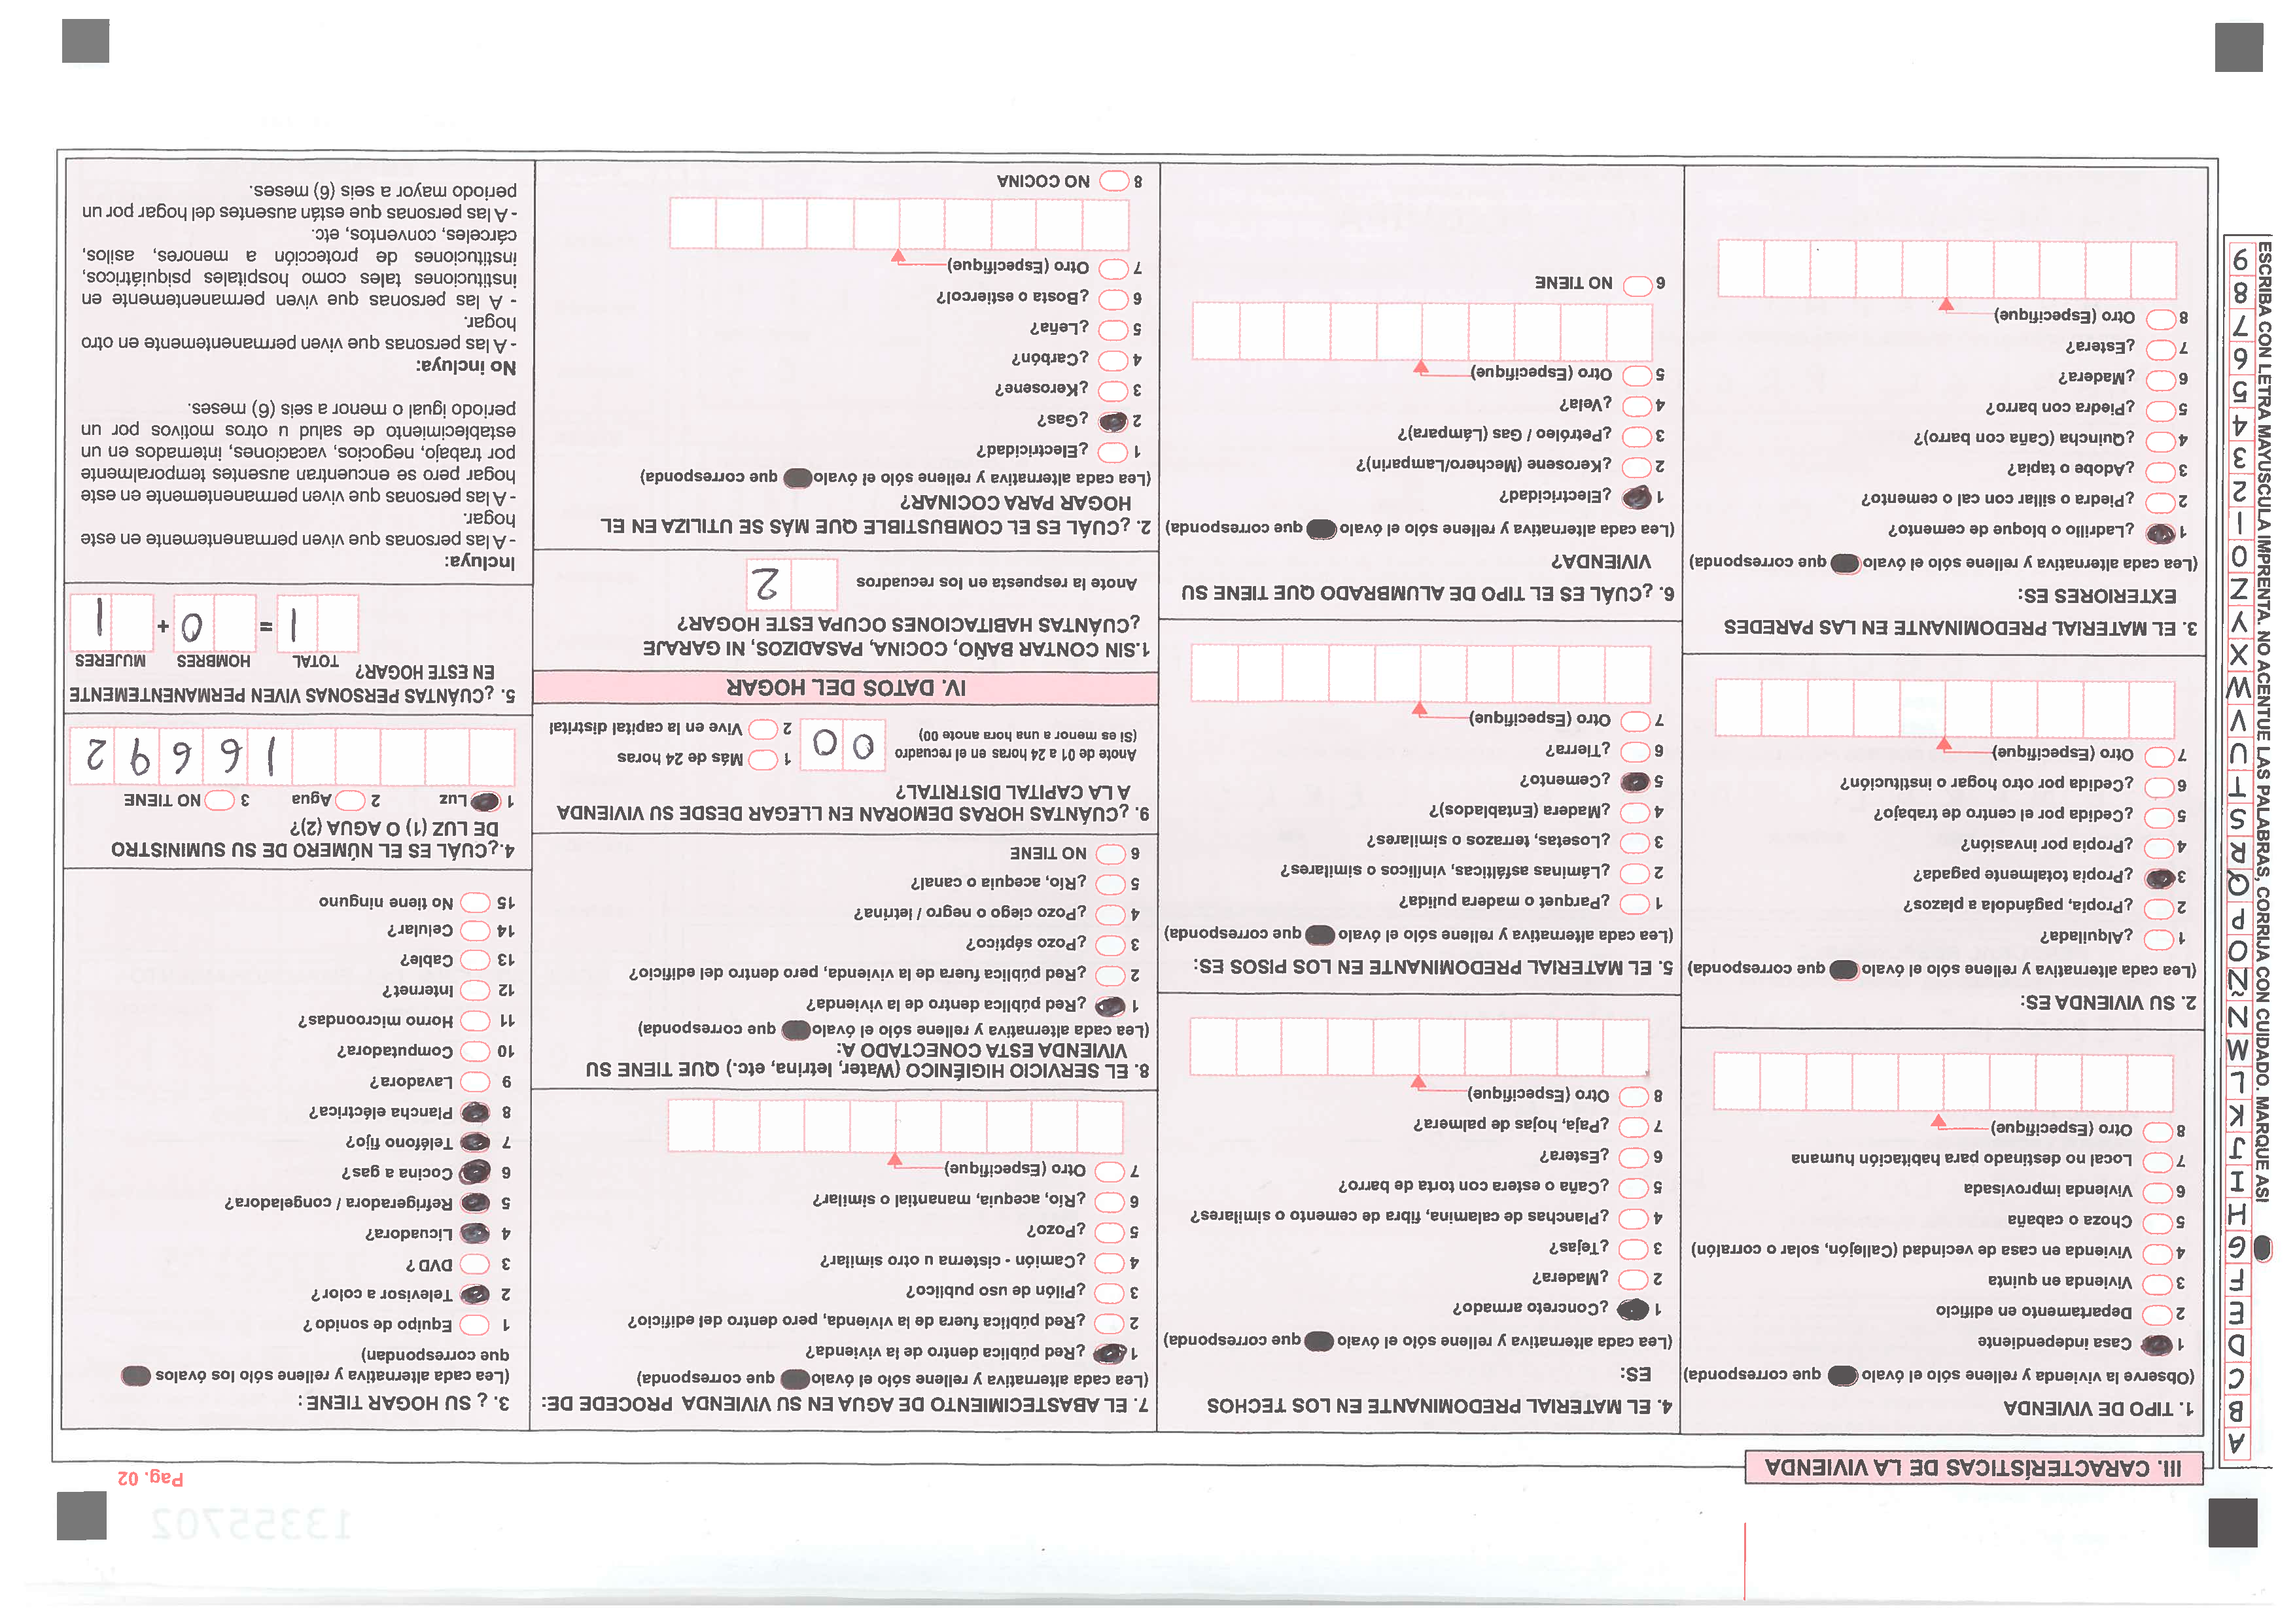 13355702
Pag. 02
III. CARACTERÍSTICAS DE LA VIVIENDA
A B C D E F G H I J K L M N Ñ O P Q R S T U V W X Y Z 0 1 2 3 4 5 6 7 8 9
ESCRIBA CON LETRA MAYUSCULA IMPRENTA. NO ACENTUE LAS PALABRAS, CORRIJA CON CUIDADO. MARQUE ASI
1. TIPO DE VIVIENDA
(Observe la vivienda y rellene sólo el óvalo que corresponda)
1 Casa independiente
2 Departamento en edificio
3 Vivienda en quinta
4 Vivienda en casa de vecindad (Callejón, solar o corralón)
5 Choza o cabaña
6 Vivienda improvisada
7 Local no destinado para habitación humana
8 Otro (Especifique)
2. SU VIVIENDA ES:
(Lea cada alternativa y rellene sólo el óvalo que corresponda)
1 ¿Alquilada?
2 ¿Propia, pagándola a plazos?
3 ¿Propia totalmente pagada?
4 ¿Propia por invasión?
5 ¿Cedida por el centro de trabajo?
6 ¿Cedida por otro hogar o institución?
7 Otro (Especifique)
3. EL MATERIAL PREDOMINANTE EN LAS PAREDES
EXTERIORES ES:
(Lea cada alternativa y rellene sólo el óvalo que corresponda)
1 ¿Ladrillo o bloque de cemento?
2 ¿Piedra o sillar con cal o cemento?
3 ¿Adobe o tapia?
4 ¿Quincha (Caña con barro)?
5 ¿Piedra con barro?
6 ¿Madera?
7 ¿Estera?
8 Otro (Especifique)
4. EL MATERIAL PREDOMINANTE EN LOS TECHOS
ES:
(Lea cada alternativa y rellene sólo el óvalo que corresponda)
1 ¿Concreto armado?
2 ¿Madera?
3 ¿Tejas?
4 ¿Planchas de calamina, fibra de cemento o similares?
5 ¿Caña o estera con torta de barro?
6 ¿Estera?
7 ¿Paja, hojas de palmera?
8 Otro (Especifique)
5. EL MATERIAL PREDOMINANTE EN LOS PISOS ES:
(Lea cada alternativa y rellene sólo el óvalo que corresponda)
1 ¿Parquet o madera pulida?
2 ¿Láminas asfálticas, vinílicos o similares?
3 ¿Losetas, terrazos o similares?
4 ¿Madera (Entablados)?
5 ¿Cemento?
6 ¿Tierra?
7 Otro (Especifique)
6. ¿CUÁL ES EL TIPO DE ALUMBRADO QUE TIENE SU
VIVIENDA?
(Lea cada alternativa y rellene sólo el óvalo que corresponda)
1 ¿Electricidad?
2 ¿Kerosene (Mechero/Lamparin)?
3 ¿Petróleo / Gas (Lámpara)?
4 ¿Vela?
5 Otro (Especifique)
6 NO TIENE
7. EL ABASTECIMIENTO DE AGUA EN SU VIVIENDA PROCEDE DE:
(Lea cada alternativa y rellene sólo el óvalo que corresponda)
1 ¿Red pública dentro de la vivienda?
2 ¿Red pública fuera de la vivienda, pero dentro del edificio?
3 ¿Pilón de uso publico?
4 ¿Camión - cisterna u otro similar?
5 ¿Pozo?
6 ¿Río, acequia, manantial o similar?
7 Otro (Especifique)
8. EL SERVICIO HIGIÉNICO (Water, letrina, etc.) QUE TIENE SU
VIVIENDA ESTA CONECTADO A:
(Lea cada alternativa y rellene sólo el óvalo que corresponda)
1 ¿Red pública dentro de la vivienda?
2 ¿Red pública fuera de la vivienda, pero dentro del edificio?
3 ¿Pozo séptico?
4 ¿Pozo ciego o negro / letrina?
5 ¿Río, acequia o canal?
6 NO TIENE
9. ¿CUÁNTAS HORAS DEMORAN EN LLEGAR DESDE SU VIVIENDA
A LA CAPITAL DISTRITAL?
Anote de 01 a 24 horas en el recuadro
(Si es menor a una hora anote 00)
0 0
1 Más de 24 horas
2 Vive en la capital distrital
IV. DATOS DEL HOGAR
1.SIN CONTAR BAÑO, COCINA, PASADIZOS, NI GARAJE
¿CUÁNTAS HABITACIONES OCUPA ESTE HOGAR?
Anote la respuesta en los recuadros 2
2. ¿CUÁL ES EL COMBUSTIBLE QUE MÁS SE UTILIZA EN EL
HOGAR PARA COCINAR?
(Lea cada alternativa y rellene sólo el óvalo que corresponda)
1 ¿Electricidad?
2 ¿Gas?
3 ¿Kerosene?
4 ¿Carbón?
5 ¿Leña?
6 ¿Bosta o estiercol?
7 Otro (Especifique)
8 NO COCINA
3. ¿ SU HOGAR TIENE :
(Lea cada alternativa y rellene sólo los óvalos
que correspondan)
1 Equipo de sonido ?
2 Televisor a color?
3 DVD ?
4 Licuadora?
5 Refrigeradora / congeladora?
6 Cocina a gas?
7 Teléfono fijo?
8 Plancha eléctrica?
9 Lavadora?
10 Computadora?
11 Horno microondas?
12 Internet?
13 Cable?
14 Celular?
15 No tiene ninguno
4.¿CUÁL ES EL NÚMERO DE SU SUMINISTRO
DE LUZ (1) O AGUA (2)?
1 Luz 2 Agua 3 NO TIENE
1 6 6 9 2
5. ¿CUÁNTAS PERSONAS VIVEN PERMANENTEMENTE
EN ESTE HOGAR?
TOTAL HOMBRES MUJERES
1 = 0 + 1
Incluya:
- A las personas que viven permanentemente en este
hogar.
- A las personas que viven permanentemente en este
hogar pero se encuentran ausentes temporalmente
por trabajo, negocios, vacaciones, internados en un
establecimiento de salud u otros motivos por un
periodo igual o menor a seis (6) meses.
No incluya:
- A las personas que viven permanentemente en otro
hogar.
- A las personas que viven permanentemente en
instituciones tales como hospitales psiquiátricos,
instituciones de protección a menores, asilos,
cárceles, conventos, etc.
- A las personas que están ausentes del hogar por un
periodo mayor a seis (6) meses.